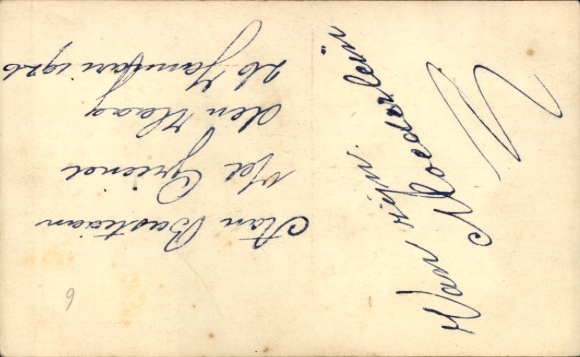 Aan Bastiaan
v/d Griend
den Haag
26 Januari 1926
Van zijn
6